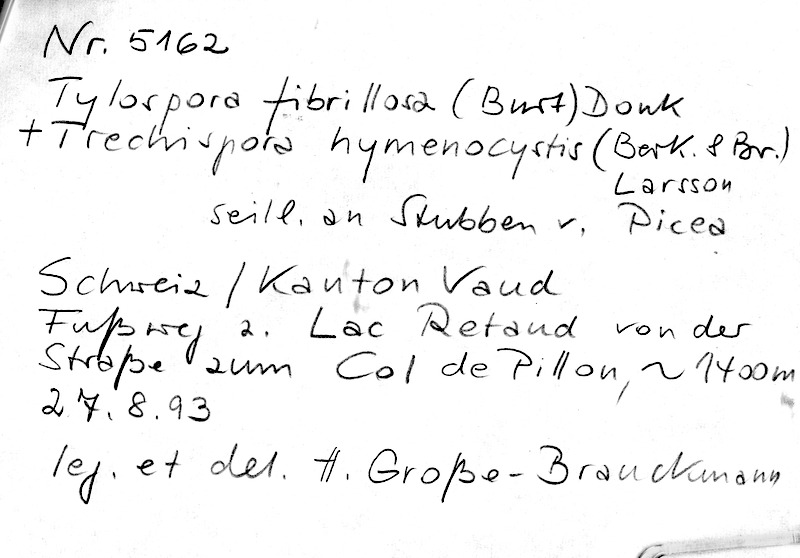 Nr. 5162
Tylospora fibrillosa (Burt) Donk
+ Trechispora hymenocystis (Berk. & Br.)
Larsson
seitl. an Stubben v. Picea
Schweiz / Kanton Vaud
Fußweg z. Lac Retaud von der
Straße zum Col de Pillon, ~ 1400m
27.8.93
leg. et det. H. Große-Brauckmann